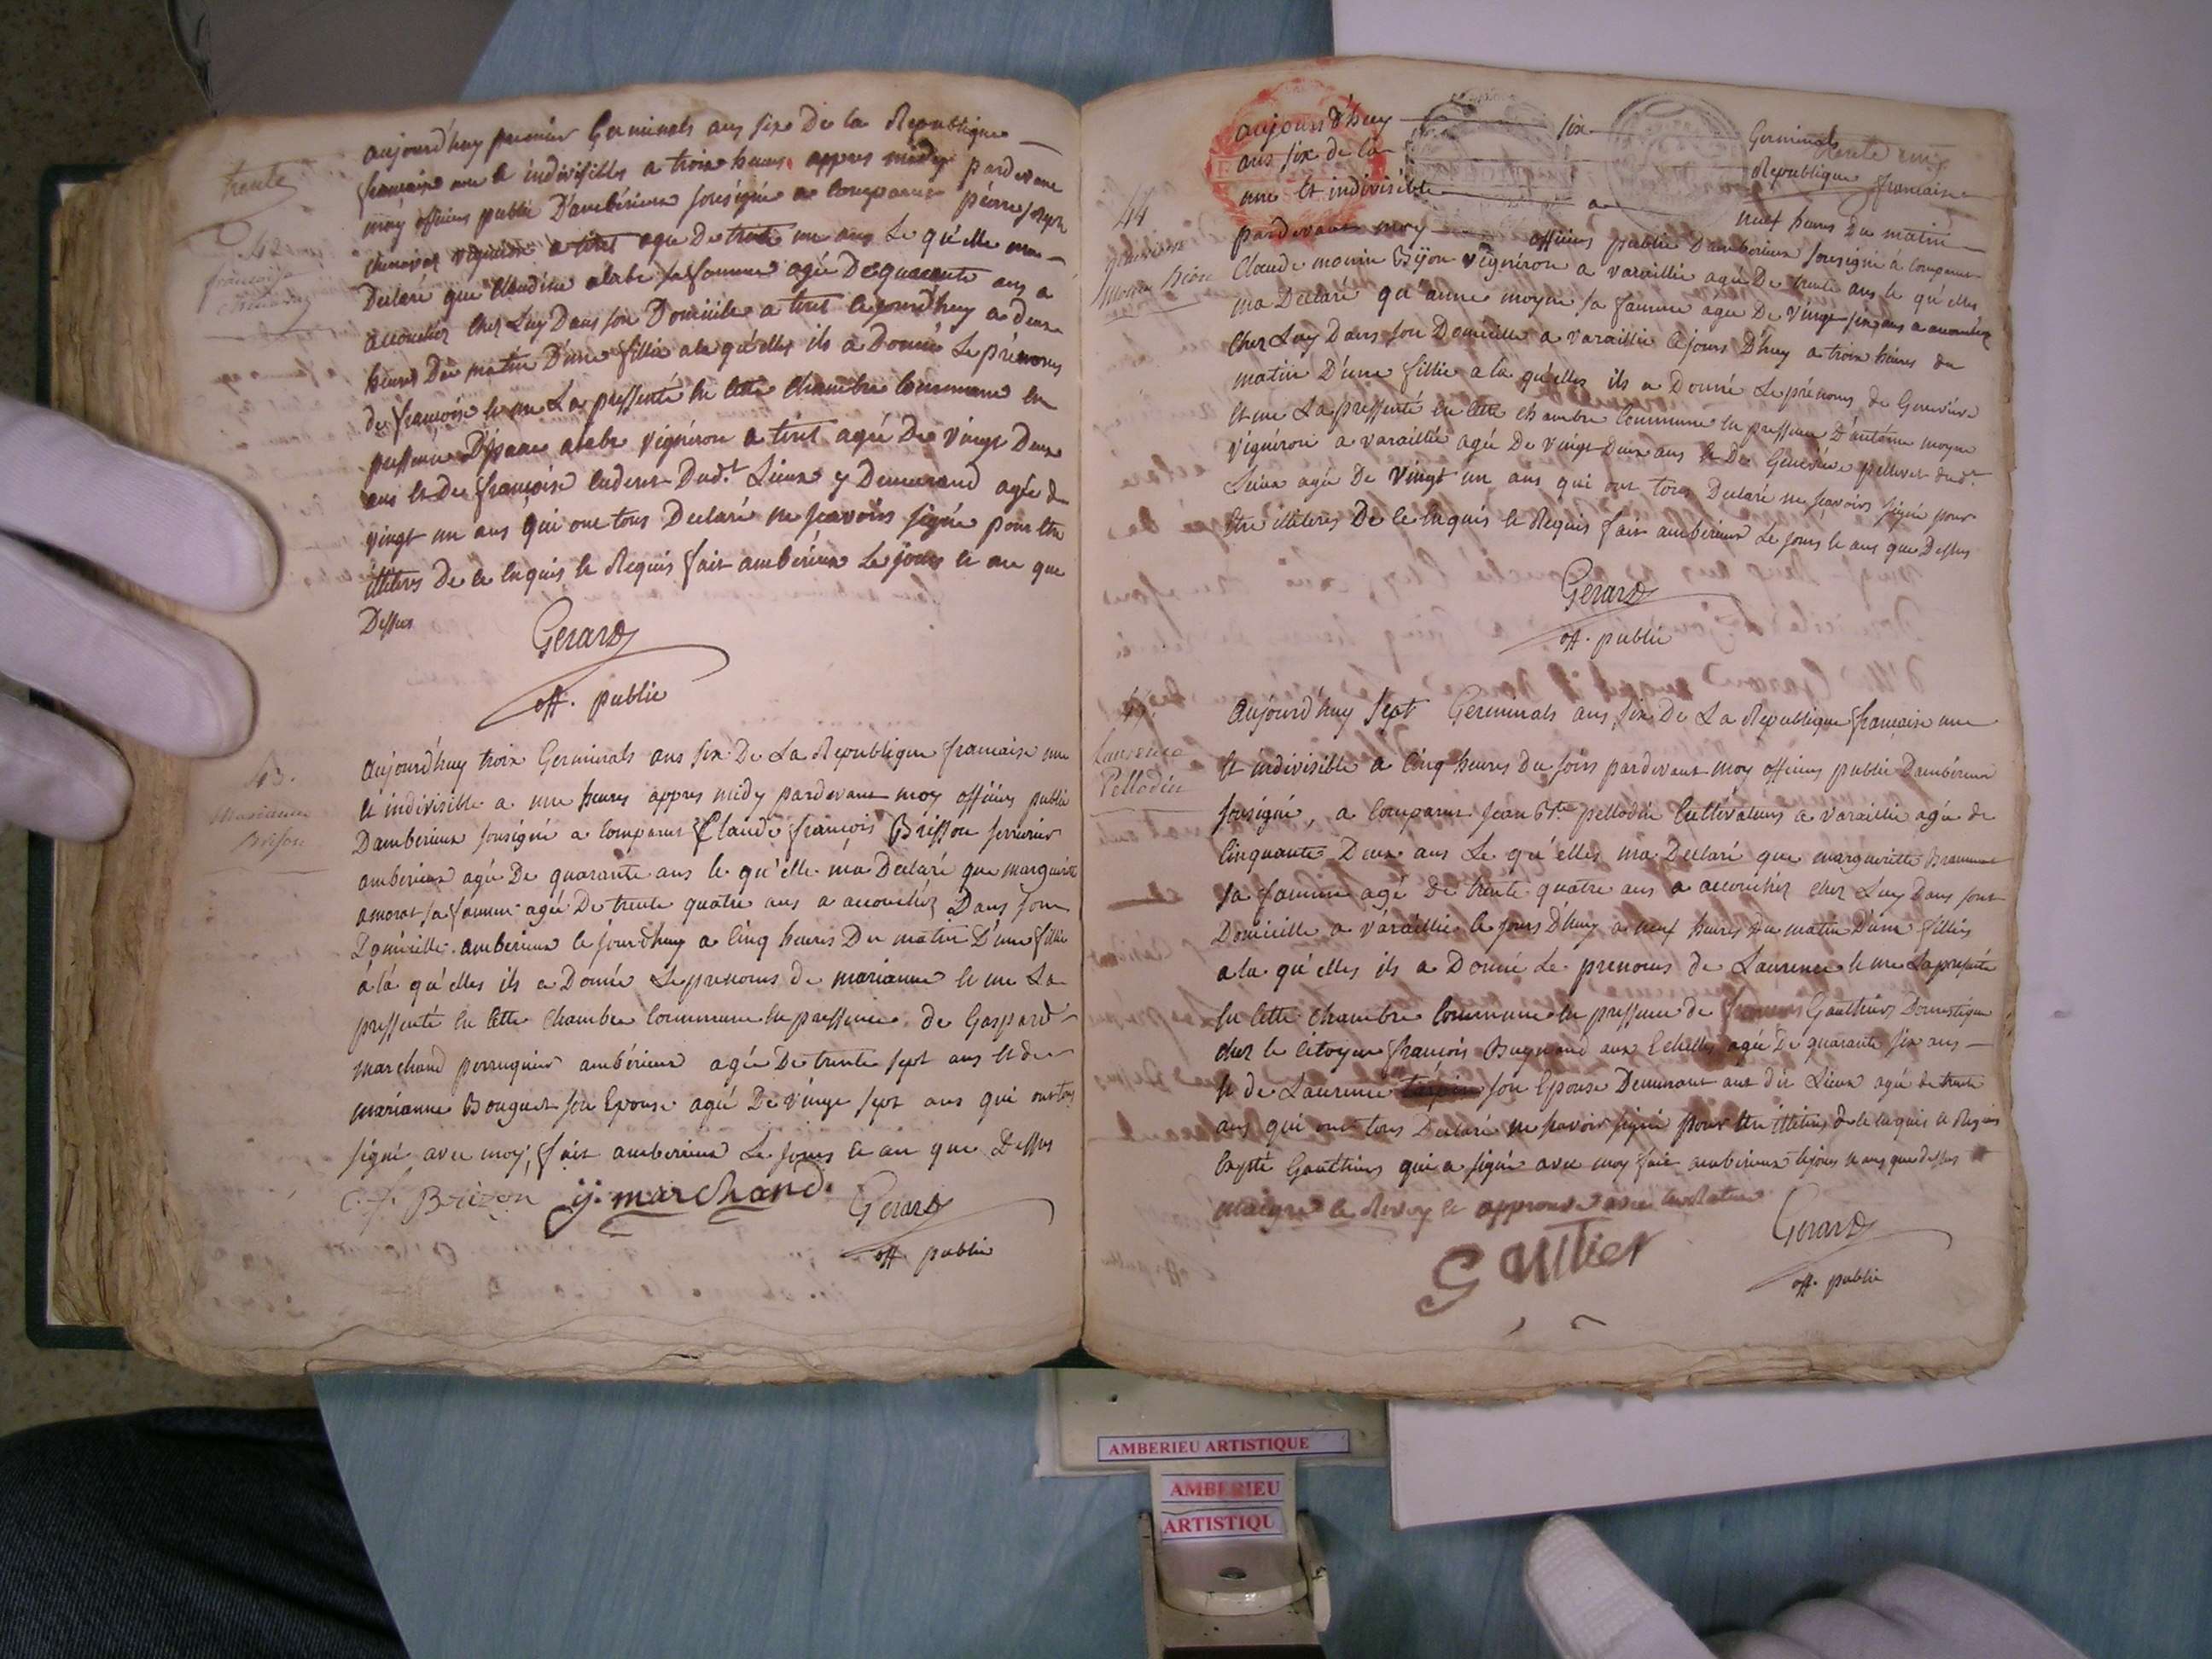 trente
42
françoise
chenavaz
aujourd'huy premier Germinals ans six De la Republique
francaise une et indivisibles a troix heures appres midy pardevant
moy officiers public D'ambérieux sousigné a comparut pierre joseph
chenavaz vigneron a tiret agée De trente un ans Le qu'elle ma
Declaré que Claudine alabe sa famme agée De quarante ans a
accouchez chez Luy Dans son Domicille a tiret le jourd'huy a deux
heures Du matin D'une fillie a la qu'elles ils a Donné Le prénoms
de françoise et me La pressenté en cette chambre Commune en
pressence D'isaac alabe vignéron a tiret agée De vingt Deux
ans et De françoise Dud.t Lieux y Demeurand agée de
vingt un ans qui ont tous Declaré ne scavoirs signé pour etre
illiteres De ce enquis et Requis fait ambérieux Le jours et an que
Dessus
Gerard
off. public
43.
Marianne
Brison
Aujourd'huy troix Germinals ans six De La Republique francaise une
et indivisible a une heures appres midy pardevant moy officiers public
Damberieux sousigné a comparut Claude françois Brisson serrurier
amberieux agée De quarante ans le qu'elle ma Declaré que marguerite
amorat sa famme agée De trente quatre ans a accouchez Dans son
Domicille amberieux le jourdhuy a cinq heures Du matin D'une fillie
à là qu'elles ils a Donné Le prenoms de marianne et me La
pressenté en cette chambre Commune en pressence de Gaspard
marchand perruquier ambérieux agée De trente sept ans et de
marianne Bouguet son Epouse agée De vingt sept ans qui ont tous
signé avec moy, fait amberieux Le jours et an que Dessus
C. f. Brizon
j. marchand
Gerard
off. public
trente unze
44
Genevieve
Morin Bijon
aujourd'huy six Germinals
ans six de la République francaise
une et indivisible a neuf heures Du matin
pardevant moy officiers public Damberieux sousigné a comparut
Claude morin Bijon vignéron a varaillie agée De trente ans le qu'elles
ma Declaré qu'anne moyne sa famme agée De vingt six ans a accouchez
chez Luy Dans son Domicille a varaillie le jours D'huy a troix heures du
matin D'une fillie a la qu'elles ils a Donné Le prénoms de Genevieve
et me La pressenté en cette chambre Commune en pressence D'antoine moyne
vignéron a varaillie agée De vingt Deux ans et De Genevieve dud.t
Lieux agée De vingt un ans qui ont tous Declaré ne scavoirs signé pour
être illiteres De ce enquis et Requis fait ambérieux Le jours et ans que Dessus
Gerard
off. public
Laurence
Pellodin
Aujourd'huy Sept Germinals ans six De La Republique francaise une
et indivisible a cinq heures Du soirs pardevant moy officiers public Dambérieux
sousigné, a comparut Jean B.te pellodin cultivateurs a varaillie agée de
cinquante Deux ans Le qu'elles ma Declaré que marguerite
sa famme agé de trente quatre ans a accouchez chez Luy Dans sont
Domicille a varaillie le jours D'huy a neuf heures Du matin D'une fillies
a la qu'elles ils a Donné Le prenoms de Laurence et me La presenté
en cette chambre Commune en pressence de Gauthier Domestique
chez le citoyen françois aux Echelles agée De quarante six ans
et de Laurence son Epouse Demeurant aut dit Lieux agée de trente
ans qui ont tous Declaré ne scavoir signé pour etre illiteres de ce enquis et Requis
Excepté Gauthiers qui a signé avec moy fait amberieux le jours et ans que dessus
et approuvé
Gautier
Gerard
off. public
AMBERIEU ARTISTIQUE
AMBERIEU
ARTISTIQU